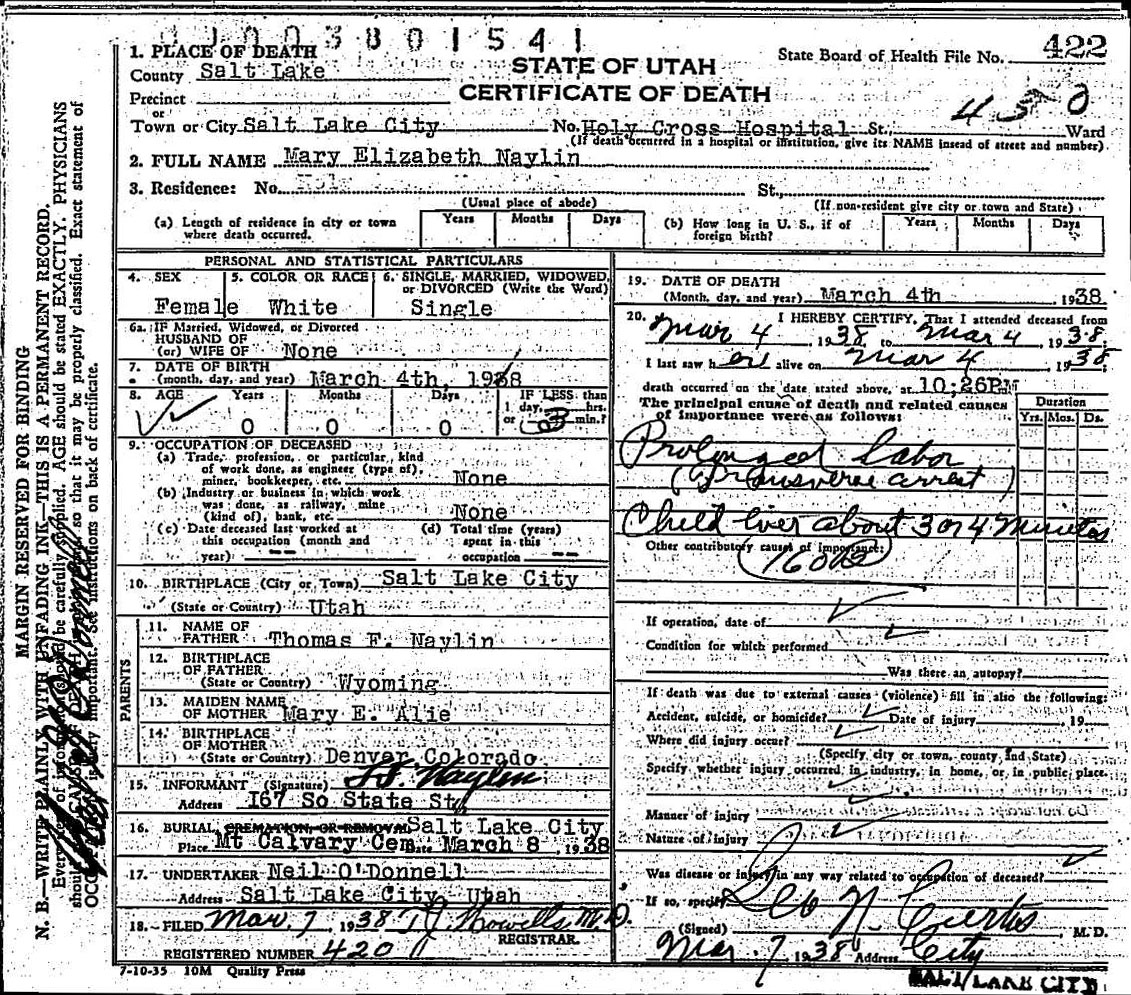 0 0 0 3 8 0 1 5 4 1
1. PLACE OF DEATH
County Salt Lake
Precinct
or
Town or City Salt Lake City No. Holy Cross Hospital St., Ward
(If death occurred in a hospital or institution, give its NAME insead of street and number)
STATE OF UTAH
CERTIFICATE OF DEATH
State Board of Health File No. 422
2. FULL NAME Mary Elizabeth Naylin
3. Residence: No. St.,
(Usual place of abode) (If non-resident give city or town and State)
(a) Length of residence in city or town where death occurred. Years Months Days
(b) How long in U. S., if of foreign birth? Years Months Days
PERSONAL AND STATISTICAL PARTICULARS
4. SEX 5. COLOR OR RACE 6. SINGLE, MARRIED, WIDOWED,
or DIVORCED (Write the Word)
Female White Single
6a. IF Married, Widowed, or Divorced
HUSBAND OF
(or) WIFE OF None
7. DATE OF BIRTH
(month, day, and year) March 4th, 1938
8. AGE Years Months Days IF LESS than
1 day, hrs.
or 03 min.?
0 0 0
9. OCCUPATION OF DECEASED
(a) Trade, profession, or particular, kind
of work done, as engineer (type of),
miner, bookkeeper, etc. None
(b) Industry or business in which work
was done, as railway, mine
(kind of), bank, etc. None
(c) Date deceased last worked at
this occupation (month and
year) --
(d) Total time (years)
spent in this
occupation --
10. BIRTHPLACE (City or Town) Salt Lake City
(State or Country) Utah
PARENTS
11. NAME OF
FATHER Thomas F. Naylin
12. BIRTHPLACE
OF FATHER
(State or Country) Wyoming
13. MAIDEN NAME
OF MOTHER Mary E. Alie
14. BIRTHPLACE
OF MOTHER
(State or Country) Denver Colorado
15. INFORMANT (Signature) T.F. Naylin
Address 167 So State St,
16. BURIAL, CREMATION, OR REMOVAL Salt Lake City
Place Mt Calvary Cem. Date March 8, 1938
17. UNDERTAKER Neil O'Donnell
Address Salt Lake City, Utah
18. FILED Mar. 7 1938 T J Howells M.D.
REGISTRAR.
REGISTERED NUMBER 420
7-10-35 10M Quality Press
19. DATE OF DEATH
(Month, day, and year) March 4th, 1938
20. I HEREBY CERTIFY, That I attended deceased from
Mar 4 1938 to Mar 4 1938
I last saw her alive on Mar 4 1938;
death occurred on the date stated above, at 10:26PM
The principal cause of death and related causes
of importance were as follows:
Duration
Yrs. Mos. Ds.
Prolonged Labor
(Transverse arrest)
Child liver about 3 or 4 Minutes
Other contributory causes of importance:
If operation, date of
Condition for which performed
Was there an autopsy?
If death was due to external causes (violence) fill in also the following:
Accident, suicide, or homicide? Date of injury , 19
Where did injury occur?
(Specify city or town, county and State)
Specify whether injury occurred in industry, in home, or in public place.
Manner of injury
Nature of injury
Was disease or injury in any way related to occupation of deceased?
If so, specify
(Signed) Leo N. Curtis, M. D.
Mar. 7 1938 Address City
SALT LAKE CITY
MARGIN RESERVED FOR BINDING
N. B.—WRITE PLAINLY WITH UNFADING INK—THIS IS A PERMANENT RECORD.
Every item of information should be carefully supplied. AGE should be stated EXACTLY. PHYSICIANS
should state CAUSE OF DEATH so that it may be properly classified. Exact statement of
OCCUPATION is very important. See instructions on back of certificate.